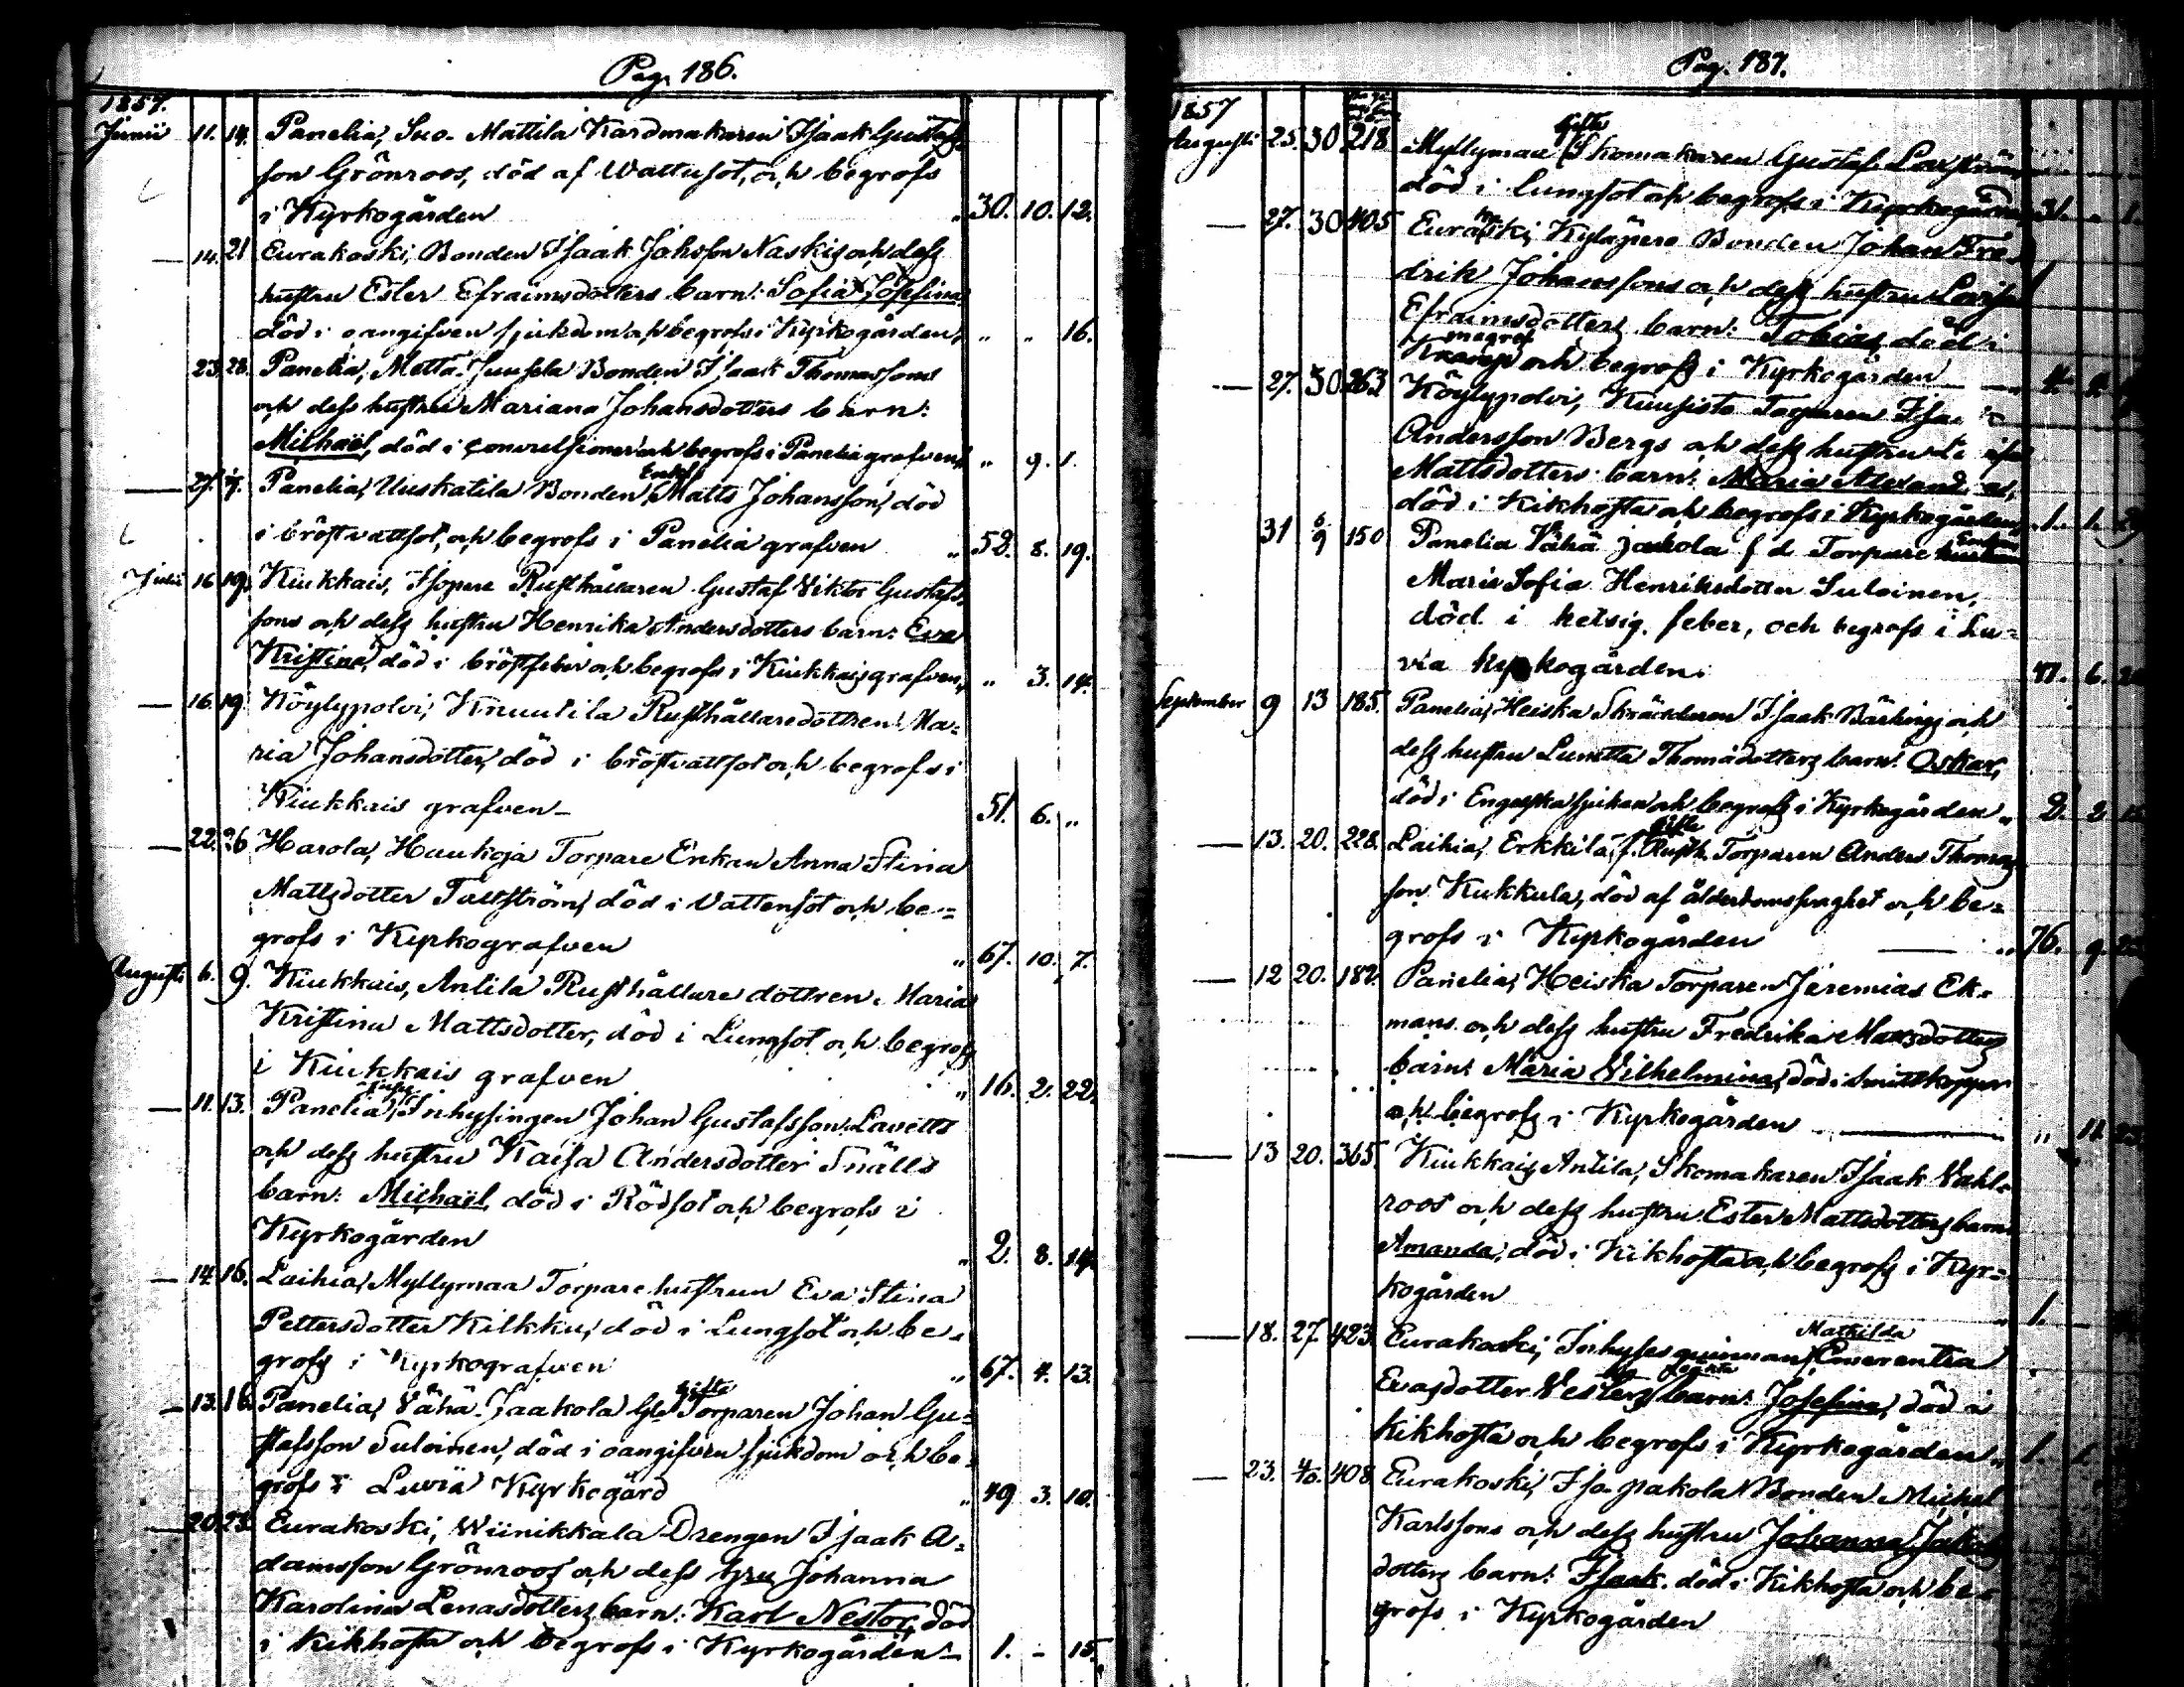 Pag. 186.
1857.
Junii 11. 14. Panelia, Suo-Mattila Kardmakaren Isaak Gustafs-
son Grönroos, död af Wattusot, och begrofs
i Kyrkogården „ 30. 10. 12.
— 14. 21 Eurakoski, Bonden Isaak Johsson Naskis och dess
hustru Ester Efraimsdotters barn: Sofia Josefina,
död i oangifven sjukdom och begrofs i Kyrkogården, „ „ 16.
23. 28. Panelia, Matta-Juusela Bonden Isaak Thomassons
och dess hustru Mariana Johansdotters barn:
Michaël, död i convulsioner och begrofs i Panelia grafven, „ 9. 1.
— 27. Panelia, Uuskatila Bonden Matts Johansson, död
i bröstvattsot, och begrofs i Panelia grafven „ 58. 8. 19.
Julii 16 19 Kiukkais, Isopere Rusthållaren Gustaf Viktor Gustafs-
sons och dess hustru Henrika Andersdotters barn: Eva
Kristina, död i bröstfeber och begrofs i Kiukkais grafven, „ 3. 14.
— 16. 19 Köylypolvi, Knuutila Rusthållaredottren Ma-
ria Johansdotter, död i bröstvattsot och begrofs i
Kiukkais grafven — 51. 6. „
— 22. 26 Harola, Haukoja Torpare Enkan Anna Stina
Mattsdotter Tallström, död i Vattensot och be-
grofs i Kyrkografven „ 67. 10. 7.
Augusti 6. 9. Kiukkais, Antila Rusthållare dottren Maria
Kristina Mattsdotter, död i Lungsot och begrofs
i Kiukkais grafven „ 16. 2. 22.
— 11. 13. Panelia, Inhysingen Johan Gustafsson Lavetts
och dess hustru Kaisa Andersdotter Snälls
barn: Michaël, död i Rödsot och begrofs i
Kyrkogården „ 2. 8. 14.
— 14. 16. Laihia, Myllymaa Torpare hustrun Eva Stina
Pettersdotter Kilkku, död i Lungsot och be-
grofs i Kyrkografven „ 67. 4. 13.
gifte
— 13. 16. Panelia, Vähä-Jaakola Gle Torparen Johan Gu-
stafsson Suloinen, död i oangifven sjukdom och be-
grofs i Luvia Kyrkogård „ 49 3. 10.
— 20. 23. Eurakoski, Wiinikkala Drengen Isaak A-
damsson Grönroos och dess hustru Johanna
Karolina Lenasdotters barn: Karl Nestor, död
i Kikhosta och begrofs i Kyrkogården — 1. – 15.
Pag. 187.
1857
Gifte
Augusti 25. 30 218 Myllymaa Skomakaren Gustaf Laxström
död i Lungsot och begrofs i Kyrkogården 31. „ 1.
— 27. 30 405 Eurakoski, Kyläpere Bonden Johan Fre-
drik Johanssons och dess hustru Lovisa
Efraimsdotters barn: Tobias, död i
magref
Kramp och begrofs i Kyrkogården — 4.
— 27. 30 263 Köylypolvi, Kuusisto Torparen Isaak
Andersson Bergs och dess hustru
Mattsdotters barn: Maria Alexandra,
död i Kikhosta och begrofs i Kyrkogården, 1. 1. 29
31 6/9 150 Panelia Vähä Jaakola f d Torpare Enkan
Maria Sofia Henriksdotter Suloinen,
död i hetsig feber, och begrofs i Lu-
via kyrkogården. 47. 6.
September 9 13 185. Panelia, Heiska Skräddaren Isaak Bärlings och
dess hustru Lunetta Thomasdotters barn: Oskar,
död i Engelska sjukan och begrofs i Kyrkogården „ 2. 2
Gifte
— 13. 20. 228. Laihia, Erkkilä, f. Rusth. Torparen Anders Thomas-
son Kukkula, död af ålderdomssvaghet och be-
grofs i Kyrkogården — „ 76. 9.
— 12 20. 182. Panelia, Heiska Torparen Jeremias Ek-
mans och dess hustru Fredrika Mattsdotters
barn: Maria Vilhelmina, död i Smittkoppor
och begrofs i Kyrkogården — „ 11.
— 13 20. 365. Kiukkais Antila, Skomakaren Isaak Vahl-
roos och dess hustru Ester Mattsdotters barn:
Amanda, död i Kikhosta och begrofs i Kyr-
kogården „ 1.
Mathilda
— 18. 27 423. Eurakoski, Inhyses qvinnan Emerentia
Evasdotter Vesterss barn: Josefina, död i
kikhosta och begrofs i Kyrkogården „ 1. 1.
— 23. 4/10. 408 Eurakoski, Iso-pakola Bonden Michel
Karlssons och dess hustru Johanna Jakobs-
dotters barn: Isaak, död i Kikhosta och be-
grofs i Kyrkogården